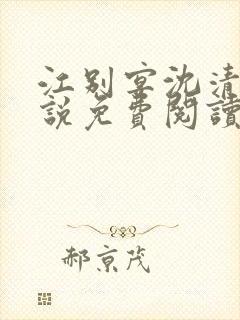 江别宴沈清
说免費閱讀
郝京茂